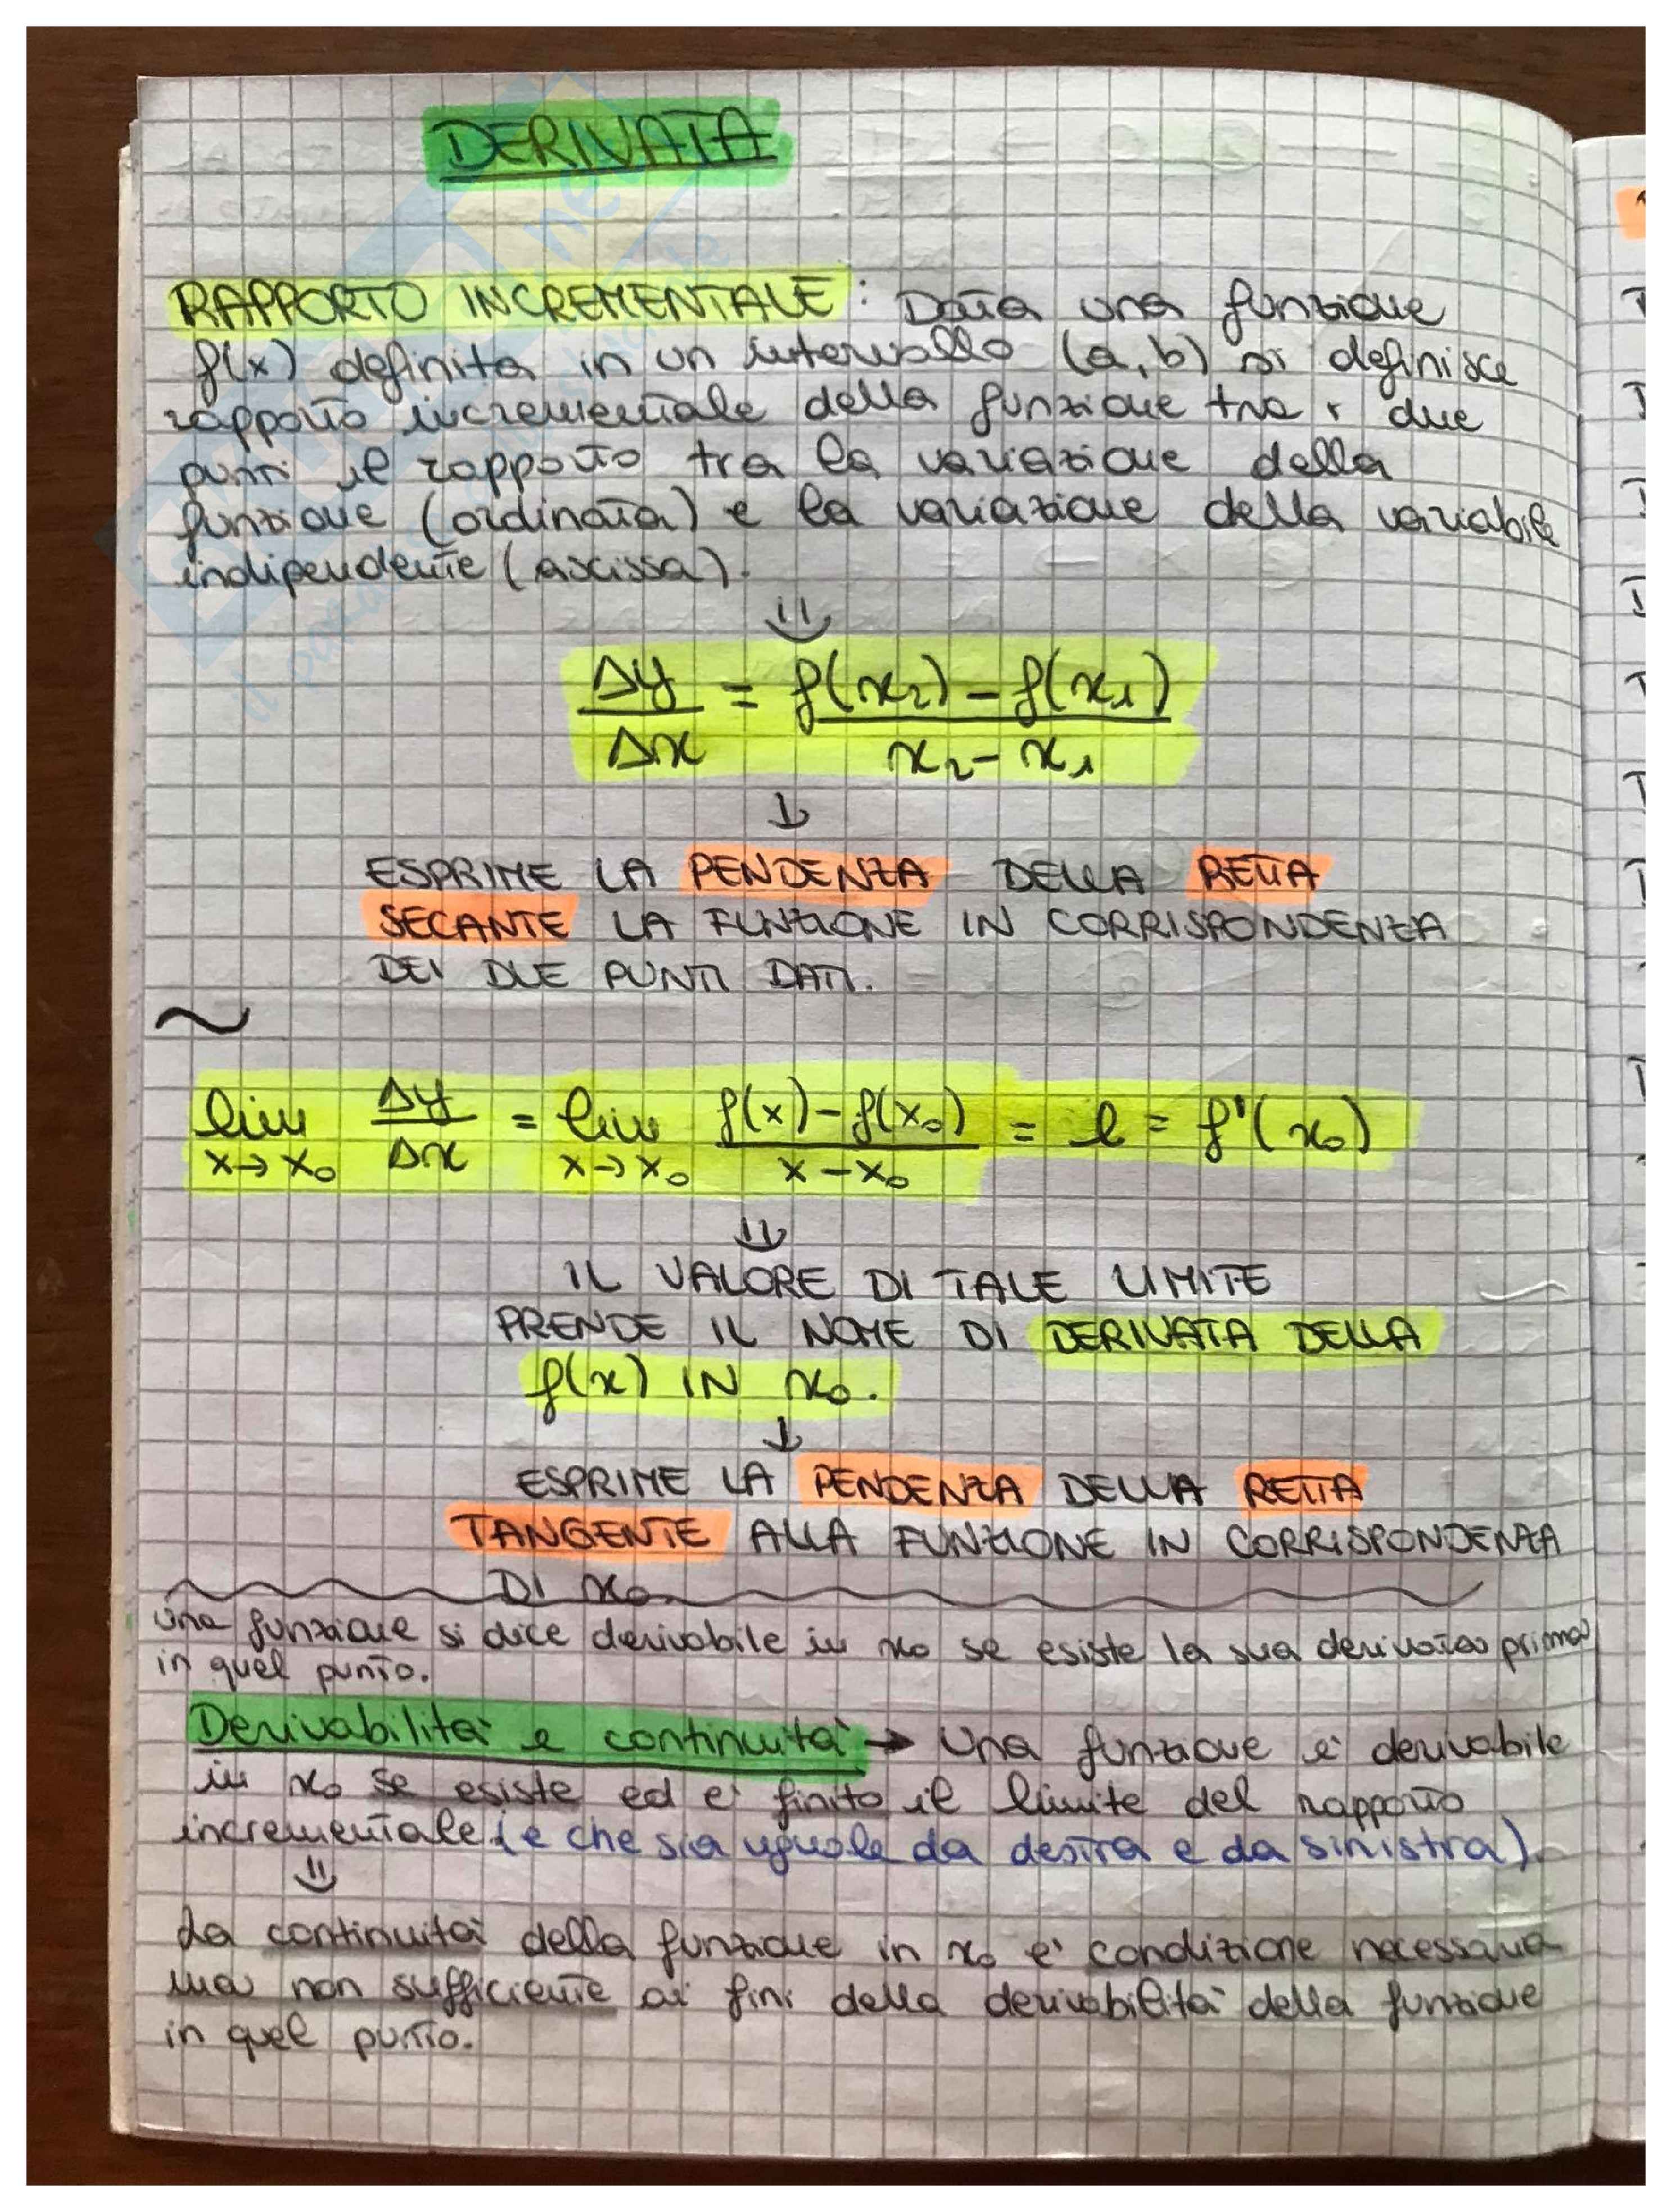 DERIVATA
RAPPORTO INCREMENTALE: Data una funzione
f(x) definita in un intervallo (a,b) si definisce
rapporto incrementale della funzione tra i due
punti il rapporto tra la variazione della
funzione (ordinata) e la variazione della variabile
indipendente (ascissa).
⇓
Δy/Δx = f(x₂) - f(x₁) / x₂ - x₁
↓
ESPRIME LA PENDENZA DELLA RETTA
SECANTE LA FUNZIONE IN CORRISPONDENZA
DEI DUE PUNTI DATI.
~
lim x→x₀ Δy/Δx = lim x→x₀ f(x) - f(x₀) / x - x₀ = l = f'(x₀)
⇓
IL VALORE DI TALE LIMITE
PRENDE IL NOME DI DERIVATA DELLA
f(x) IN x₀.
↓
ESPRIME LA PENDENZA DELLA RETTA
TANGENTE ALLA FUNZIONE IN CORRISPONDENZA
DI x₀.
Una funzione si dice derivabile in x₀ se esiste la sua derivata prima
in quel punto.
Derivabilità e continuità → Una funzione è derivabile
in x₀ se esiste ed è finito il limite del rapporto
incrementale (e che sia uguale da destra e da sinistra).
⇓
La continuità della funzione in x₀ è condizione necessaria
ma non sufficiente ai fini della derivabilità della funzione
in quel punto.